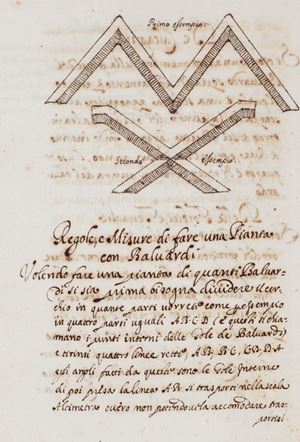 Primo essempio.
Secondo essempio.
Regole, e Misure di fare una Pianta
con Baluardi
Volendo fare una pianta di quanti Baluar-
di si sia prima bisogna dividere il cer-
chio in quante parti vorrete come p essempio
in quattro parti uguali A B C D (e questi si chia-
mano i punti interni delle Gole de Baluardi)
e tirinsi quattro linee rette A B, B C, C D, D A
gl angoli fatti da queste sono le Gole Interne
di poi presa la linea A B si trasporti nella scala
Altimetra overo non potendovila accomodare tras-
portisi